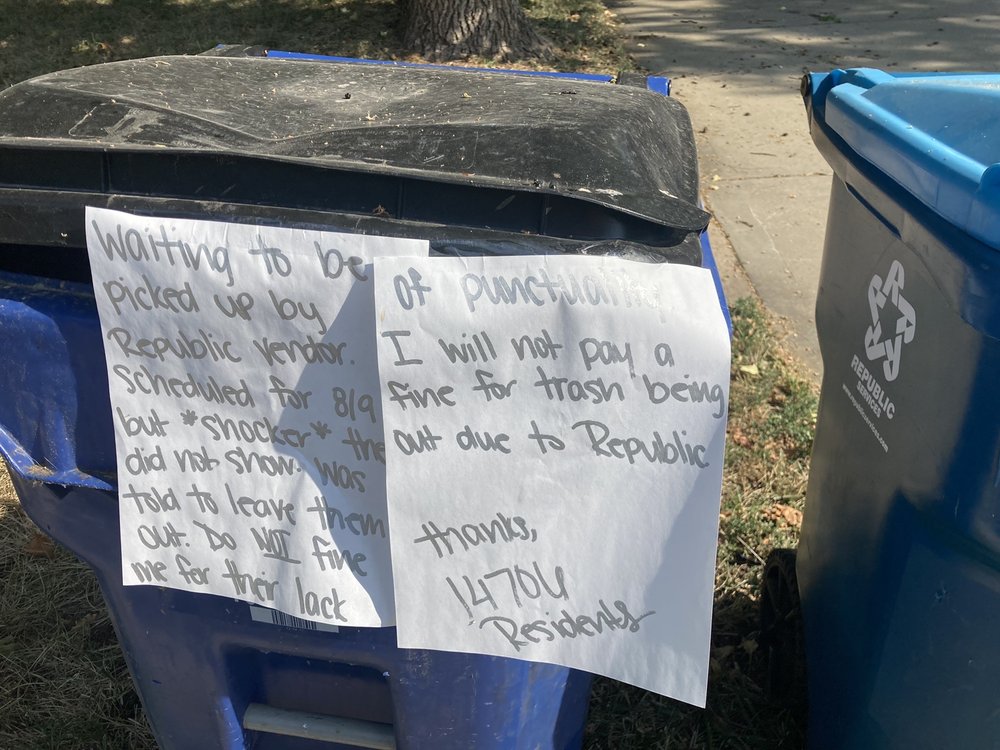 Waiting to be
picked up by
Republic vendor.
Scheduled for 8/9
but *shocker* the
did not show. Was
told to leave them
out. Do NOT fine
me for their lack
of punctuality
I will not pay a
fine for trash being
out due to Republic
thanks,
14704
Residents
REPUBLIC
SERVICES